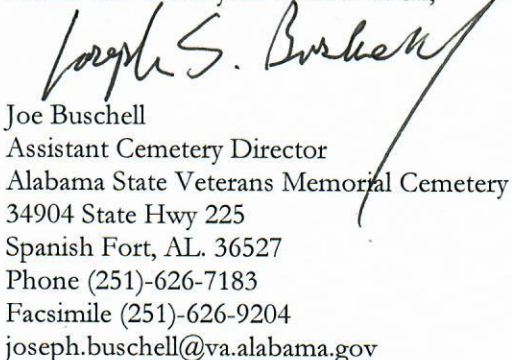 Joseph S. Buschell
Joe Buschell
Assistant Cemetery Director
Alabama State Veterans Memorial Cemetery
34904 State Hwy 225
Spanish Fort, AL. 36527
Phone (251)-626-7183
Facsimile (251)-626-9204
joseph.buschell@va.alabama.gov